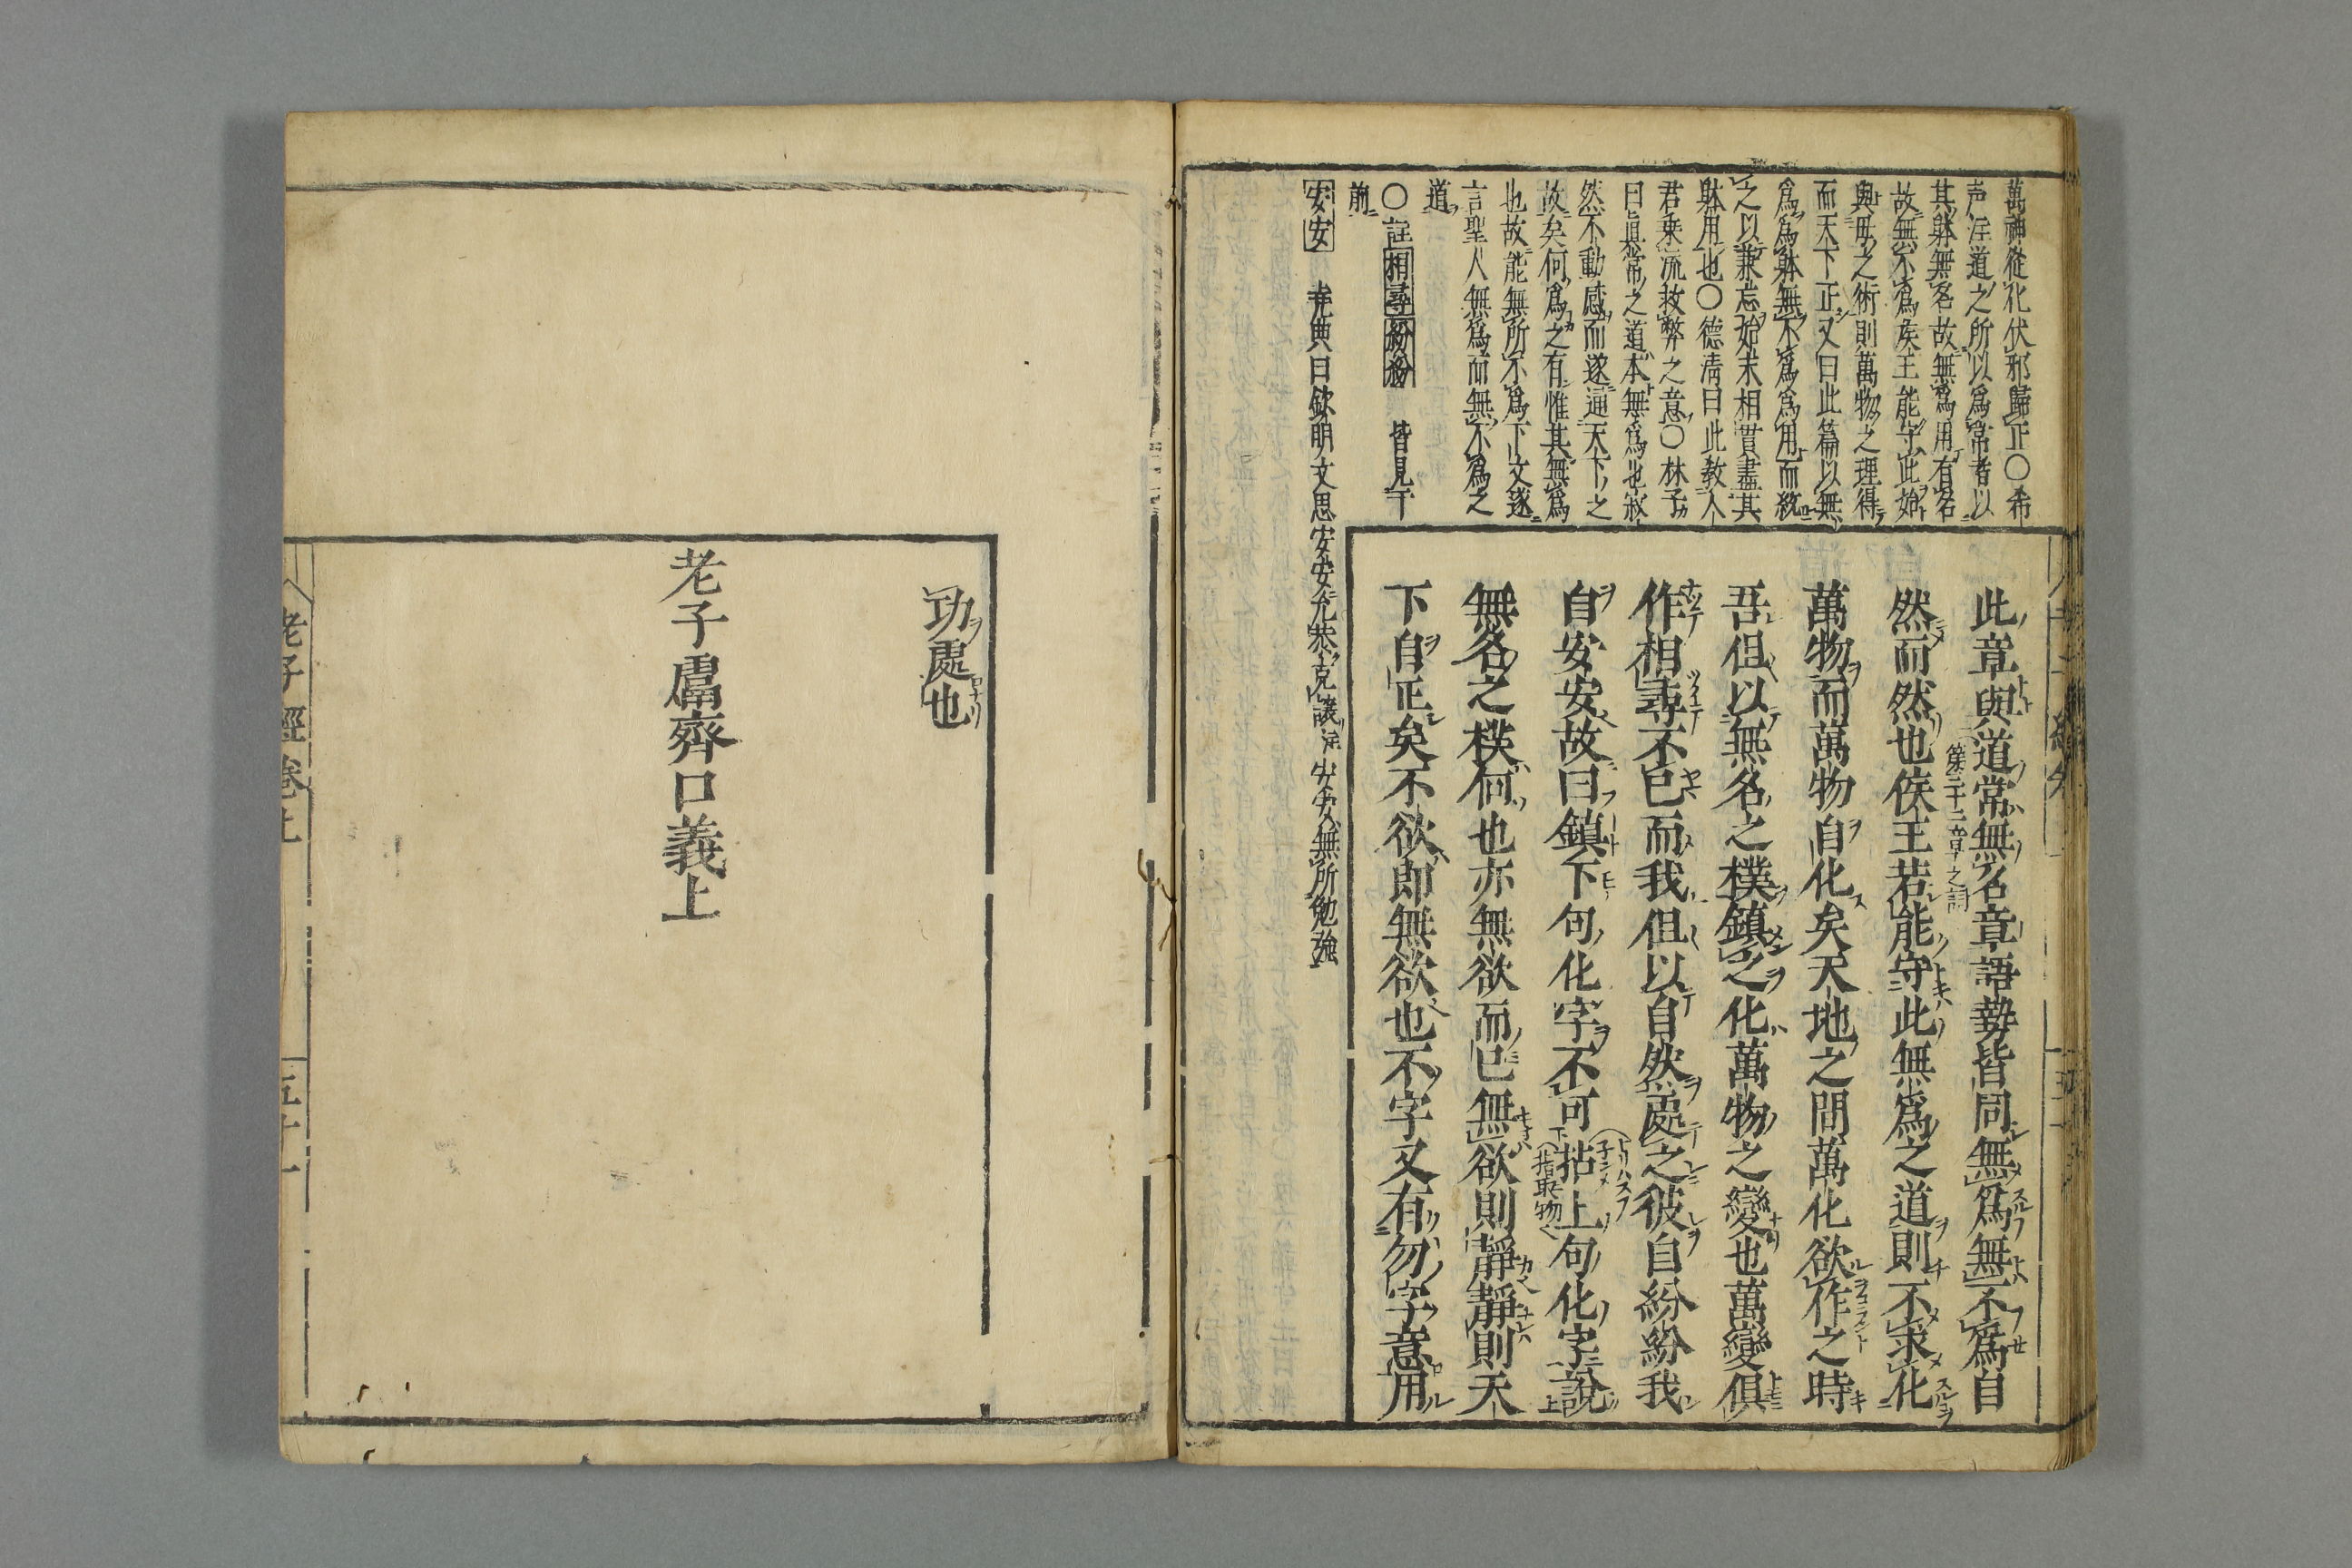 萬神從化伏邪歸正○希
声注道之所以爲常者以
其躰無名故無爲用有名
故無不爲矦王能守此始
與毋之術則萬物之理得
而天下正又曰此篇以無
爲爲躰無不爲爲用而終
之以兼忘始末相貫盡其
躰用也○德清曰此教人
君乗流救弊之意○林子
曰真常之道本無爲也寂
然不動感而遂通天下之
故矣何爲之有惟其無爲
也故能無所不爲下文遂
言聖人無爲而無不爲之
道
○註相尋紛紛　皆見于
前
安安　尭典曰欽明文思安安允恭克讓注安安無所勉強
此章與道常無名章語勢皆同無爲無不爲自
第三十二章之詞
然而然也侯王若能守此無爲之道則不求化
萬物而萬物自化矣天地之間萬化欲作之時
吾但以無名之樸鎮之化萬物之變也萬變俱
作相尋不已而我但以自然處之彼自紛紛我
自安安故曰鎮下句化字不可拈上句化字說
指取物
無名之樸何也亦無欲而已無欲則靜靜則天
下自正矣不欲即無欲也不字又有勿字意用
功處也
老子鬳齊口義上
老子經卷上
五十一